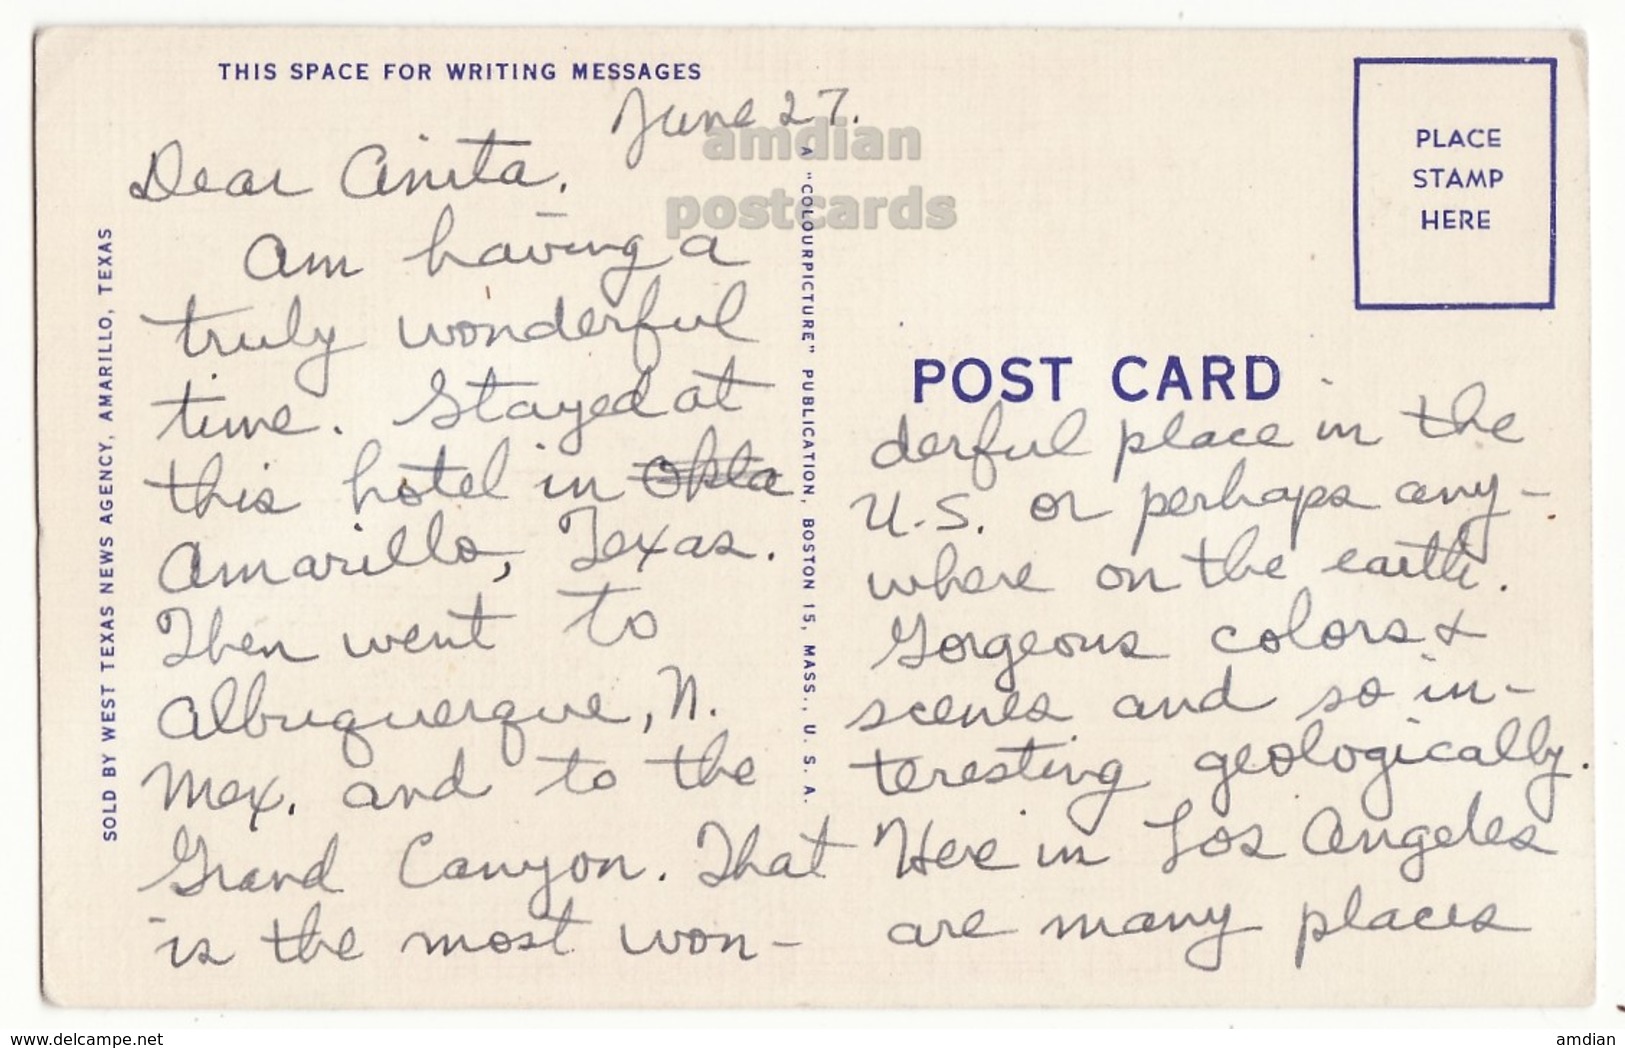 THIS SPACE FOR WRITING MESSAGES
June 27.
Dear Anita,
Am having a
truly wonderful
time. Stayed at
this hotel in Okla
Amarillo, Texas.
Then went to
Albuquerque, N.
Mex. and to the
Grand Canyon. That
is the most won-
SOLD BY WEST TEXAS NEWS AGENCY, AMARILLO, TEXAS
A "COLOURPICTURE" PUBLICATION, BOSTON 15, MASS., U. S. A.
amdian
postcards
PLACE
STAMP
HERE
POST CARD
derful place in the
U.S. or perhaps any-
where on the earth.
Gorgeous colors &
scenes and so in-
teresting geologically.
Here in Los Angeles
are many places
www.delcampe.net
amdian